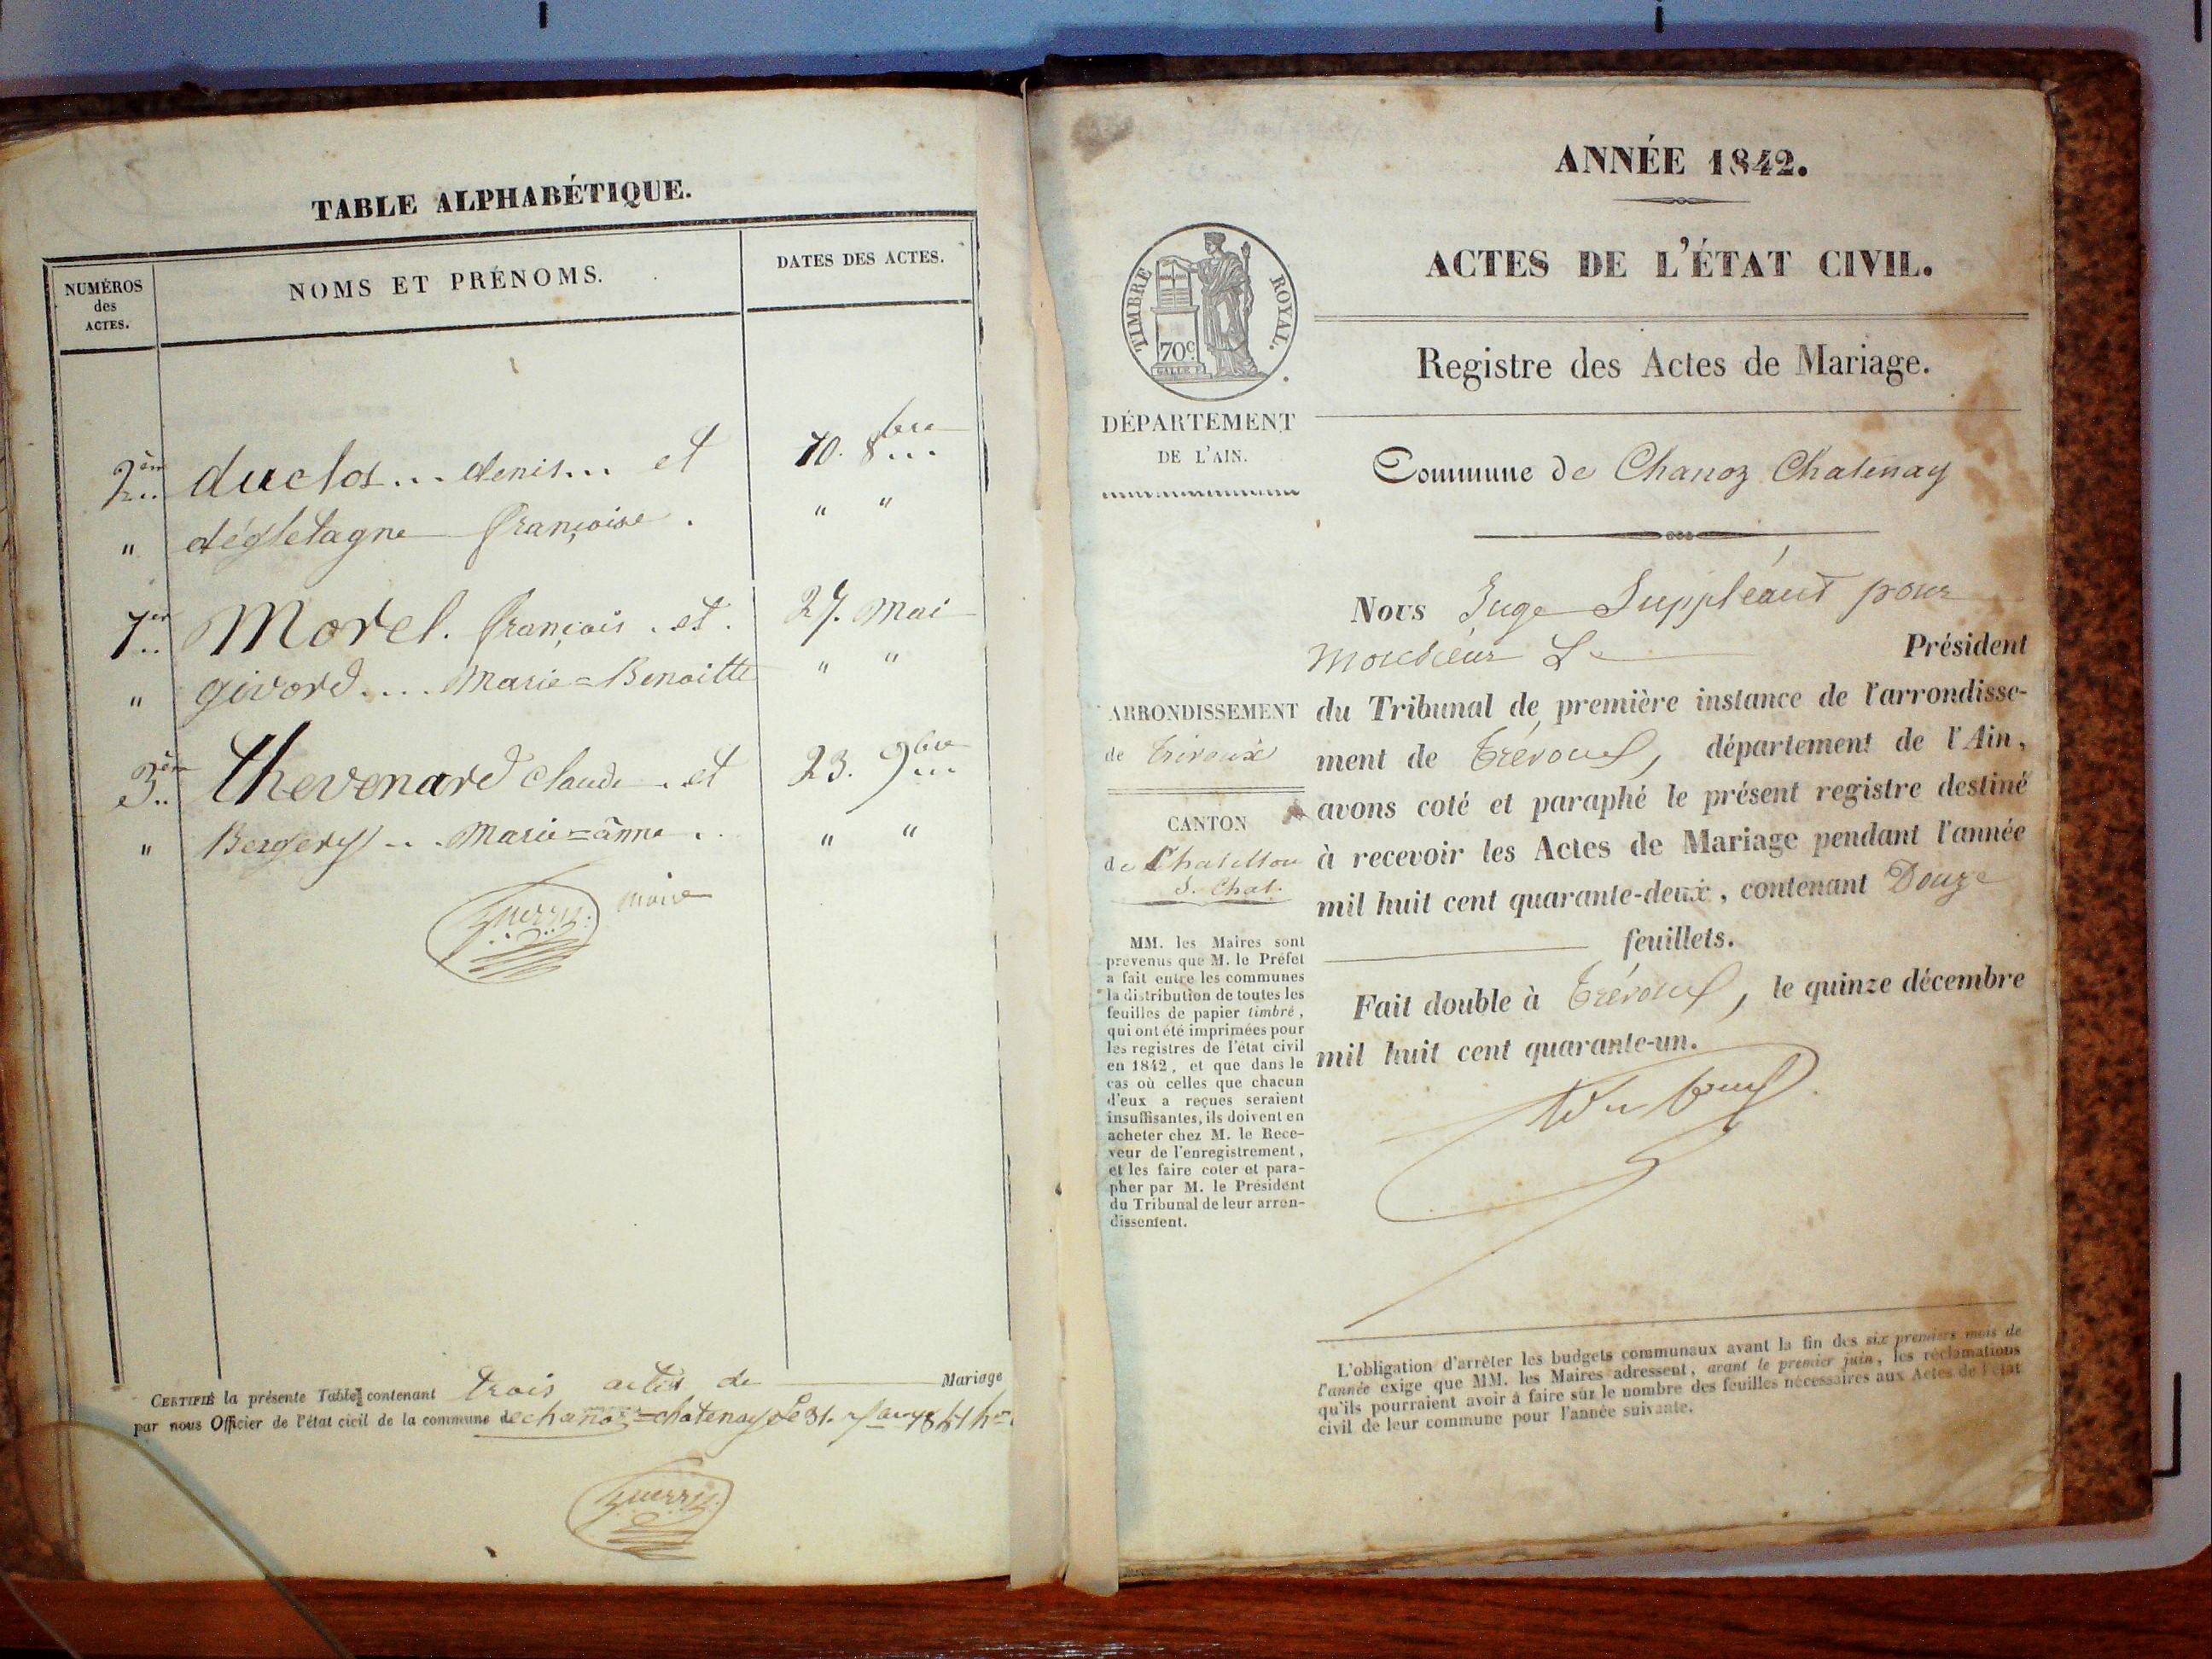 TABLE ALPHABÉTIQUE.
NUMÉROS
des
ACTES.
NOMS ET PRÉNOMS.
DATES DES ACTES.
2ème duclos... denis... et 10. 8bre...
" dégletagne françoise. " "
1er Morel. françois. et. 27. mai
" givord.... Marie=Benoitte " "
3ème thevenard claude. et 23. 9bre...
" Bergery... Marie=anne.. " "
guerry. maire
CERTIFIÉ la présente Table contenant trois actes de Mariage
par nous Officier de l'état civil de la commune de chanoz=chatenay Le 31.
guerry.
ANNÉE 1842.
ACTES DE L'ÉTAT CIVIL.
Registre des Actes de Mariage.
TIMBRE ROYAL.
70c
DÉPARTEMENT
DE L'AIN.
Commune de Chanoz Chatenay
Nous Juge Suppléant pour
monsieur Le Président
du Tribunal de première instance de l'arrondisse-
ment de Trévoux, département de l'Ain,
avons coté et paraphé le présent registre destiné
à recevoir les Actes de Mariage pendant l'année
mil huit cent quarante-deux, contenant Douze
feuillets.
Fait double à Trévoux, le quinze décembre
mil huit cent quarante-un.
ARRONDISSEMENT
de Trévoux
CANTON
de Chatillon
S. Chal.
MM. les Maires sont
prévenus que M. le Préfet
a fait entre les communes
la distribution de toutes les
feuilles de papier timbré,
qui ont été imprimées pour
les registres de l'état civil
en 1842, et que dans le
cas où celles que chacun
d'eux a reçues seraient
insuffisantes, ils doivent en
acheter chez M. le Rece-
veur de l'enregistrement,
et les faire coter et para-
pher par M. le Président
du Tribunal de leur arron-
dissement.
L'obligation d'arrêter les budgets communaux avant la fin des six premiers mois de
l'année exige que MM. les Maires adressent, avant le premier juin, les réclamations
qu'ils pourraient avoir à faire sur le nombre des feuilles nécessaires aux Actes de l'état
civil de leur commune pour l'année suivante.